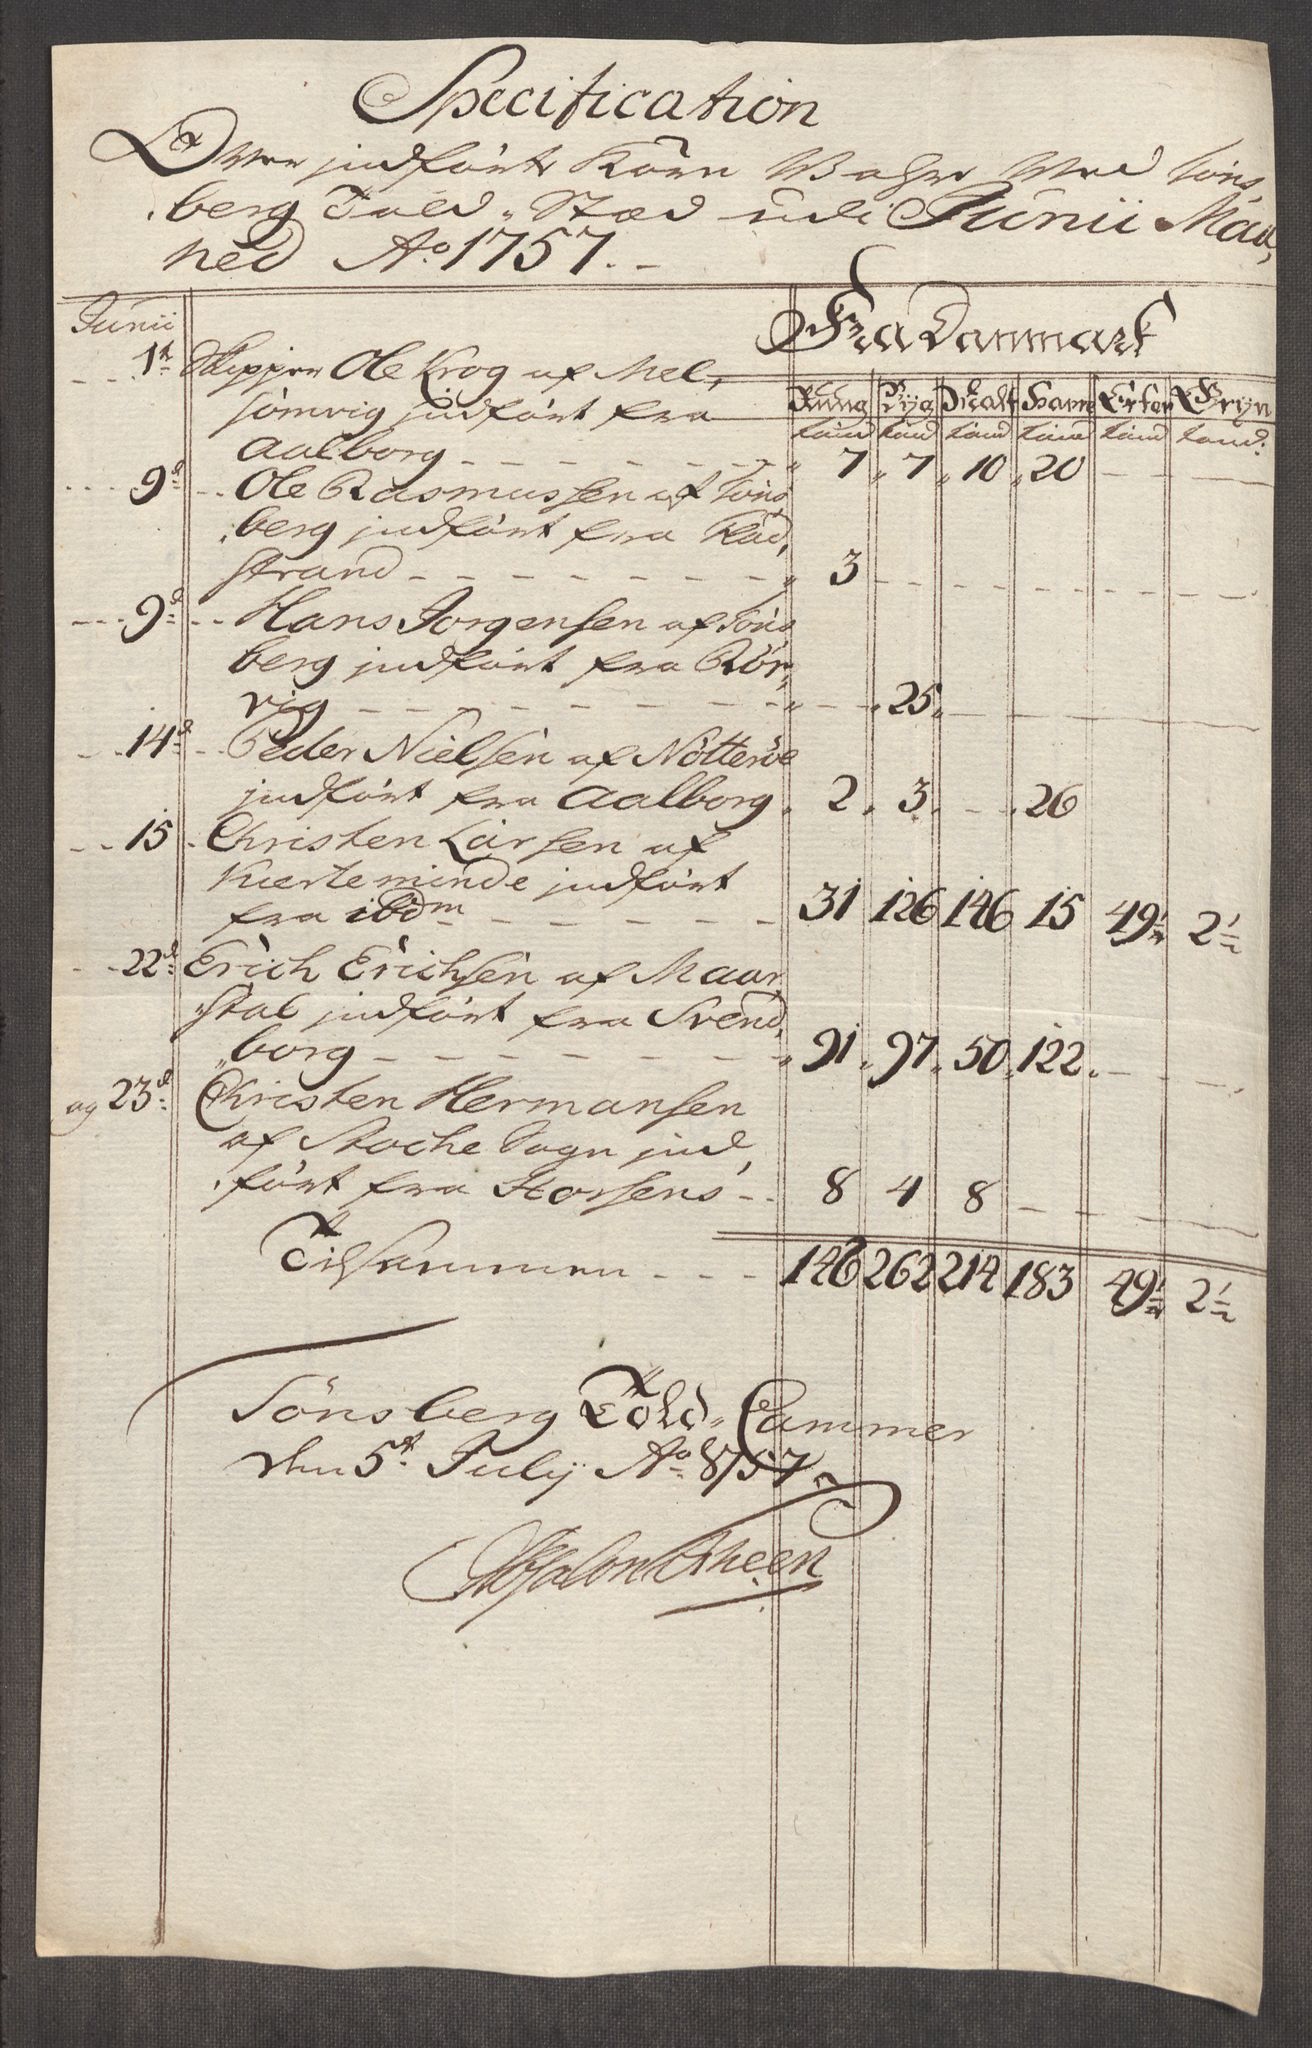 Specification
Over jndförte Korn Vahre Ved Töns,
berg Told-Stæd udi Junii Maa,
ned Ao 1757.
Junii
Fra Danmark
Rung Byg Malt Havre Erter Gryn
tönd tönd tönd tönd tönd tönd:
1t Skipper Ole Krog af Mel,
sömvig jndfört fra
Aalborg 7 7 10 20
9d Ole Rasmussen af Töns,
berg jndfört fra Flad,
strand 3
9d Hans Jorgensen af Töns
berg jndfört fra Rör,
vig 25
14d Peder Nielsen af Nötteröe
jndfört fra Aalborg 2 3 26
15 Christen Larsen af
Kierteminde jndfört
fra ibdm 31 126 146 15 49½ 2½
22d Erich Erichsen af Maar,
stal jndfört fra Svend,
borg 91 97 50 122
og 23d Christen Hermansen
af Stocke Sogn jnd,
fört fra Horsens 8 4 8
Tilsammen 146 262 214 183 49½ 2½
Tönsberg Told-Cammer
den 5t July Ao 1757
Absalon Rheen